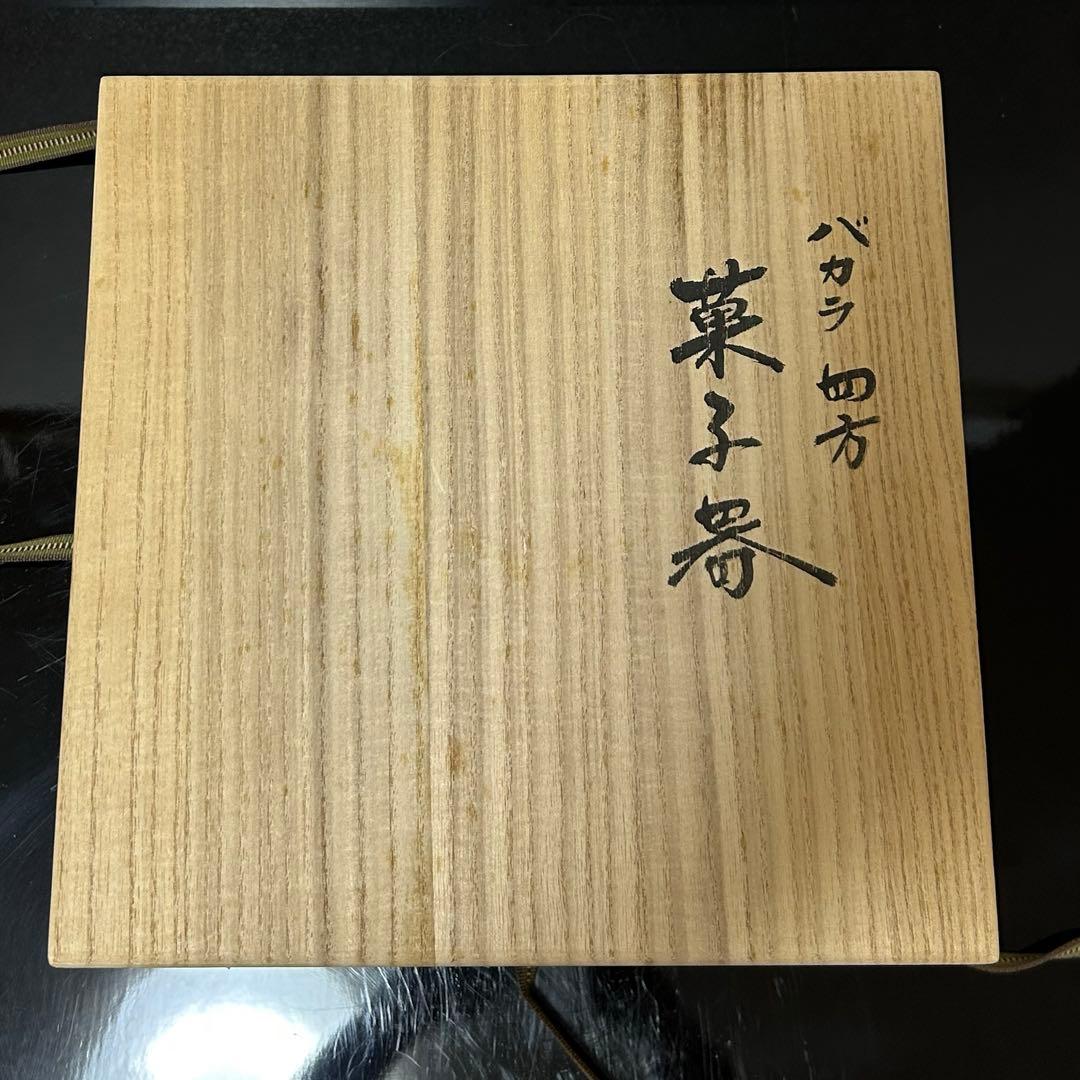 バカラ 四方
菓子器